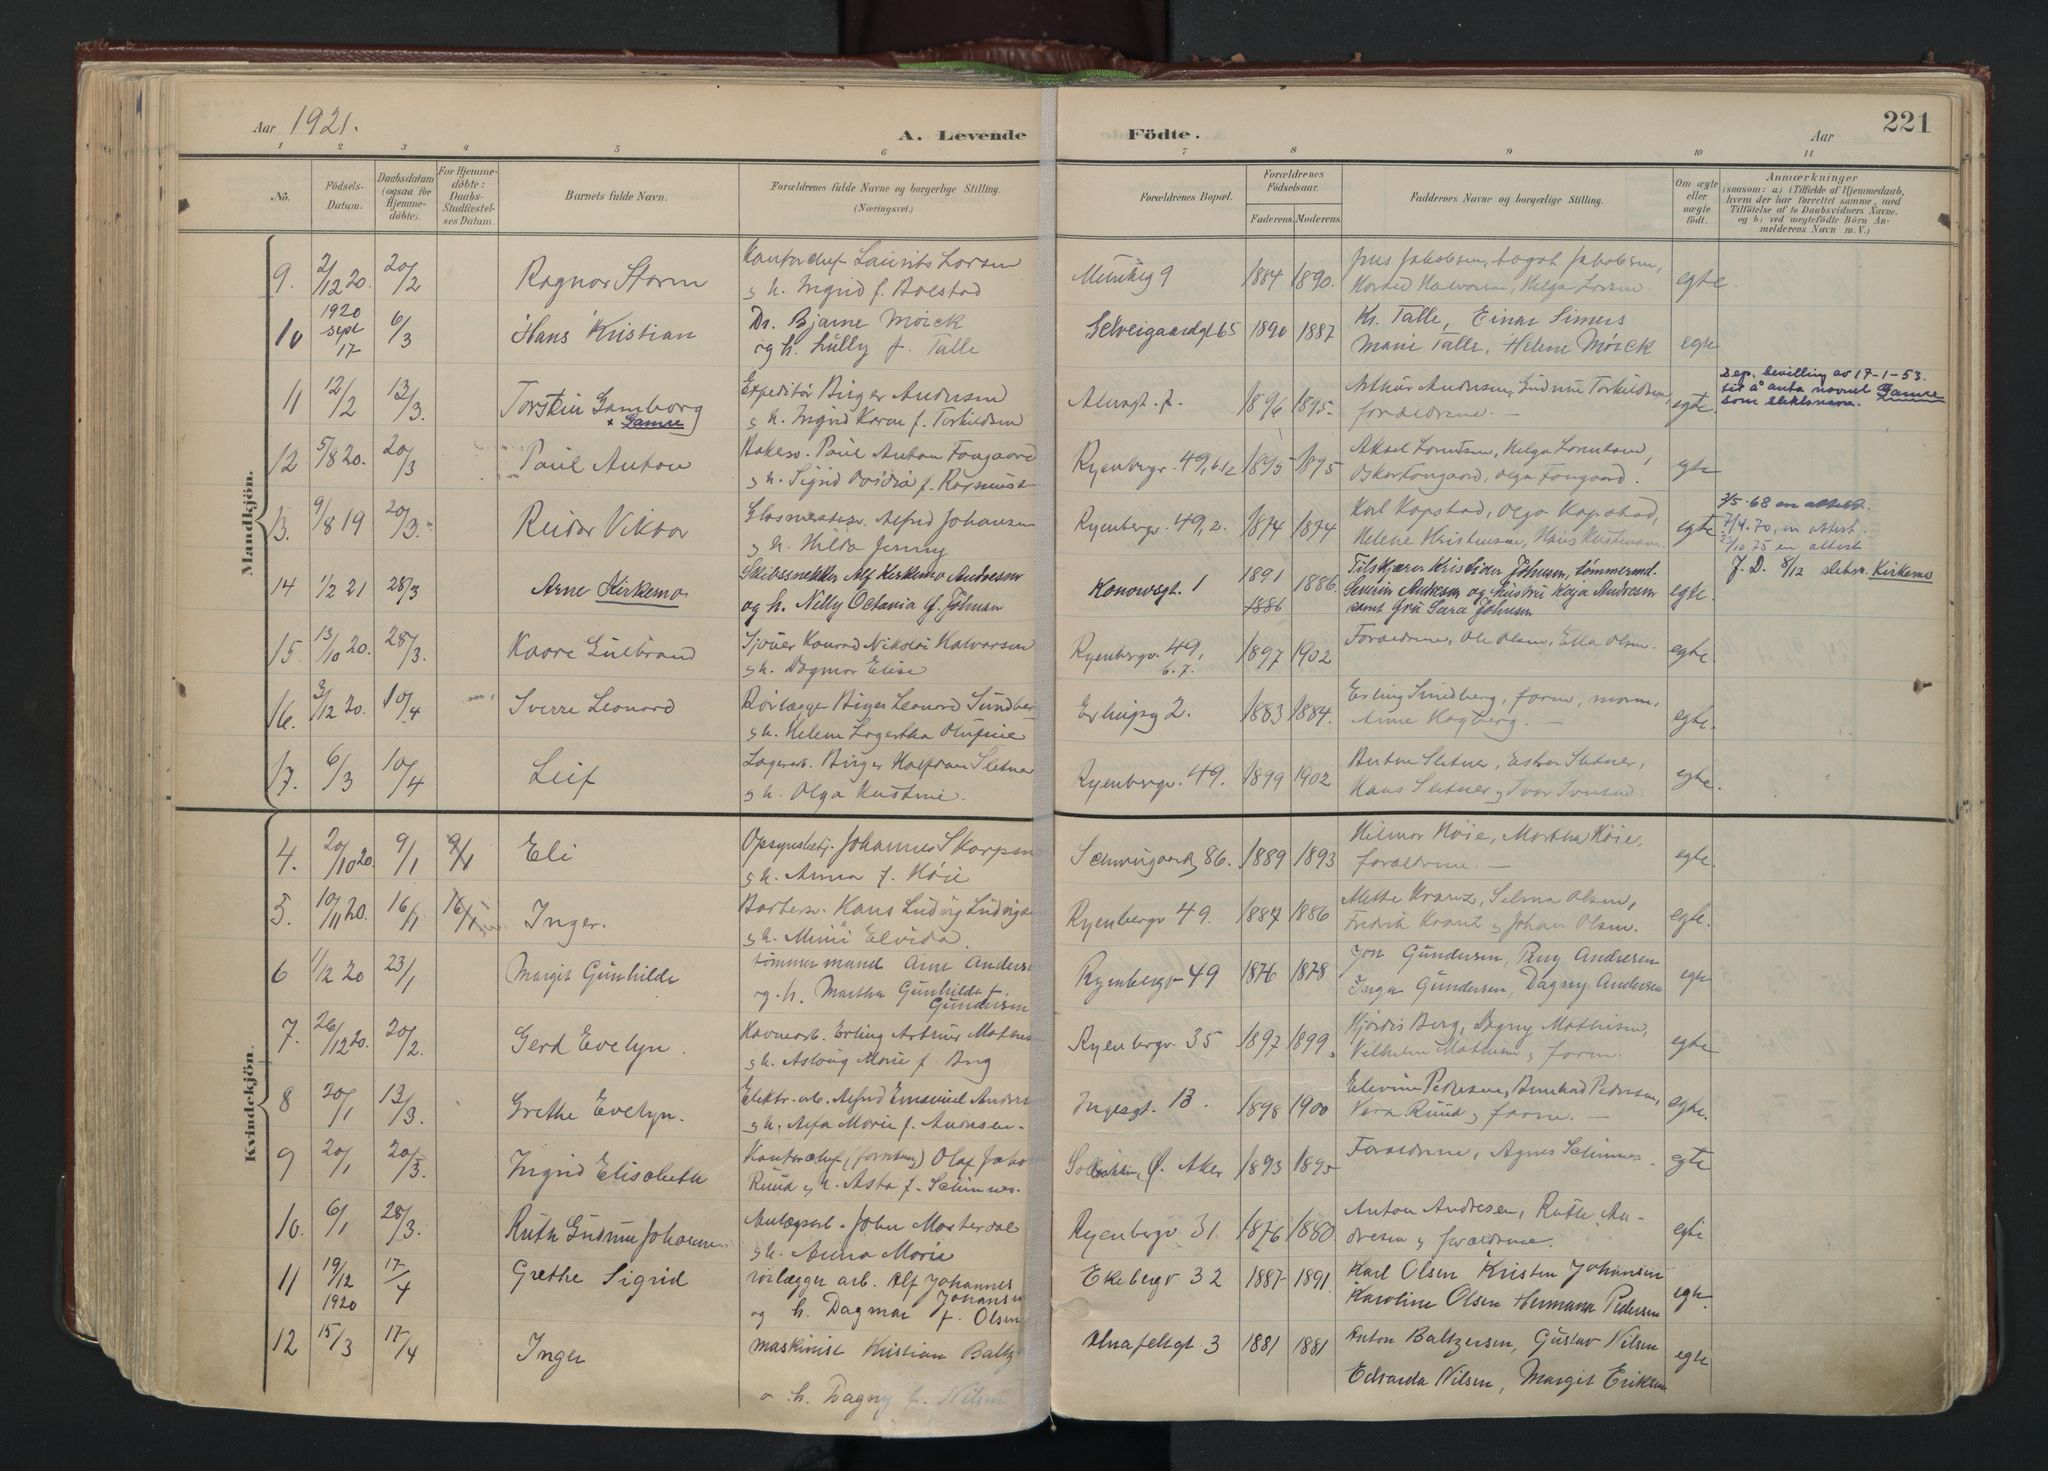 Aar 1921.
A. Levende Födte.
Aar 221
1 2 3 4 5 6 7 8 9 10 11
No.
Födsels-Datum.
Daabsdatum (ogsaa for Hjemmedöbte).
For Hjemmedöbte: Daabs-Stadfæstelses Datum.
Barnets fulde Navn.
Forældrenes fulde Navne og borgerlige Stilling. (Næringsvei.)
Forældrenes Bopæl.
Forældrenes Födselsaar.
Faderens. Moderens.
Faddernes Navne og borgerlige Stilling.
Om ægte eller uægte födt.
Anmærkninger
(saasom: a.) i Tilfælde af Hjemmedaab, hvem der har forrettet samme, med Tilföielse af to Daabsvidners Navne. og b) ved uegtefödte Börn Anmelderens Navn m. V.)
Mandkjön.
9. 2/12 20. 20/2 Ragnar Storm
Kontorchef Laurits Larsen
& h. Ingrid f. Bolstad
9 1884 1890.
Jakobsen, Jakobsen,
Halvorsen, Helga Larsen. egte.
10 1920 sept 17 6/3 Hans Kristian
Dr. Bjarne Mörck
og h. Lully f. Talle
65 1890 1887
Kr. Talle, Einar Simers
Marie Talle, Helene Mörck egte
11 12/2 13/3. Torstein Gamborg
+ Gamre
Expeditör Birger Andersen
& h. Ingrid Karen f. Torkildsen
7. 1896 1895.
Arthur Andersen, Gudrun Torkildsen,
forældrene. — egte.
Dep. bevilling av 17-1-53.
til å anta navnet Gamre
som slektsnavn.
12 5/8 20. 20/3 Paul Anton
Paul Anton Fongaard
& h. Sigrid f.
Ryenbergv. 49, 1895 1895
Aksel Lorentsen, Helga Lorentsen,
Oskar Fongaard, Olga Fongaard. egte
13. 9/8 19 20/3. Reidar Viktor
Glasmester Alfred Johansen
& h. Hilda Jenny
Ryenbergv. 49, 2. 1874 1874
Karl Kopstad, Olga Kopstad,
Helene Kristensen, Hans Kristensen. egte.
7/5. 68 en attest.
7/4. 70, en attest.
23/10 75 en attest
14 1/2 21 28/3 Arne Kirkemo
Skibssnekker Alf Kirkemo Andresen
og h. Nelly Octavia f. Johnsen
Konowsgt. 1 1891 1886 1886.
Tilskjærer Kristider Johnsen, tømmermd.
Severin Andresen og hustru Kaja Andresen
samt fru Sara Johnsen egte.
J. D. 8/12 slektsn. Kirkemo
15. 13/10 20. 28/3. Kaare Gulbrand
Sjouer Konrad Nikolai Halvorsen
& h. Dagmar Elise
Ryenbergv. 49, 6. 7. 1897 1902
Forældrene, Ole Olsen, Ella Olsen. egte.
16. 3/12 20. 10/4 Sverre Leonard
Rörlægger Birger Leonard Sundberg
& h. Helene Lagertha
2. 1883 1884.
Erling Sundberg, farm, morm,
Anne Hagberg. — egte.
17. 6/3 10/4 Leif
Lagerarb. Birger Halfdan Sletner
& h. Olga Kristine.
Ryenbergv. 49. 1899 1902
Anton Sletner, Ester Sletner,
Hans Sletner & Ivar egte.
Kvindekjön.
4. 20/10 20. 9/1 9/1 Eli
Opsynsbetj. Johannes Skarpsno
& h. Anna f. Höie
Schweigaardsg 86. 1889 1893
Hilmar Höie, Martha Höie,
forældrene. — egte.
5. 10/11 20. 16/1 16/1 Inger.
Barber Hans Ludvig Ludvigsen
& h. Mimi Elvida.
Ryenbergv 49. 1887 1886
Mette Krantz, Selma Olsen,
Fredrik Krantz & Johan Olsen. egte.
6 1/12 20 23/1 Margit Gunhilde
tömmermand Arne Anders
og h. Martha Gunhilde f.
Gundersen
Ryenbergv 49 1876 1878
Jon Gundersen, Peny Andresen
Inga Gundersen, Dagny Andersen egte
7. 26/12 20. 20/2. Gerd Evelyn.
Havnearb. Erling Arthur Mathis
& h. Aslaug Marie f. Berg
Ryenbergv 35 1897 1899.
Hjördis Berg, Dagny Mathisen,
Vilhelm Mathisen & farm. egte
8 20/1 13/3. Grethe Evelyn.
Elektr. arb. Alfred Emanuel Anders
& h. Alfa Marie f. Andresen.
Ingesgt. 13. 1898 1900
Pedersen, Pedersen,
Vera Ruud & farm. — egte.
9 20/1 20/3. Ingrid Elisabeth
Kontorchef Olaf Johan
Ruud & h. Asta f. Schinnes.
Ö. Aker 1893 1895
Forældrene, Agnes Schinnes. egte
10. 6/1 28/3. Ruth Gudrun Johanne.
Anlægsarb. John Masterdal
& h. Anna Marie
Ryenbergv. 31. 1876 1880.
Anton Andresen, Ruth An-
dresen & forældrene. egte
11 19/12 1920 17/4 Grethe Sigrid
rörlægger arb. Alf Johannes
Johansen
og h. Dagmar f. Olsen
Ekebergv 32 1887 1891
Karl Olsen Kristen Johansen
Karoline Olsen Hermana Pedersen egte.
12 15/3 17/4 Inger
maskinist Kristian Baltz
o h. Dagny f. Nilsen
3 1881 1881
Anton Baltzersen, Gustav Nilsen
Edvarda Nilsen, Margit Eriksen egte